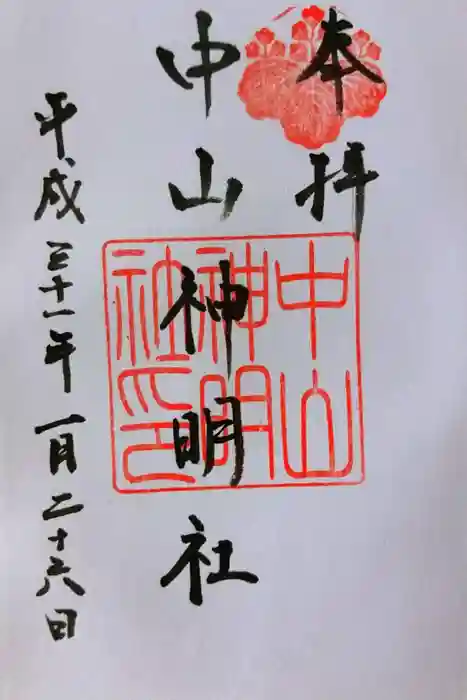 奉拝
中山神明社
平成三十一年一月二十六日
中山
神明
社印